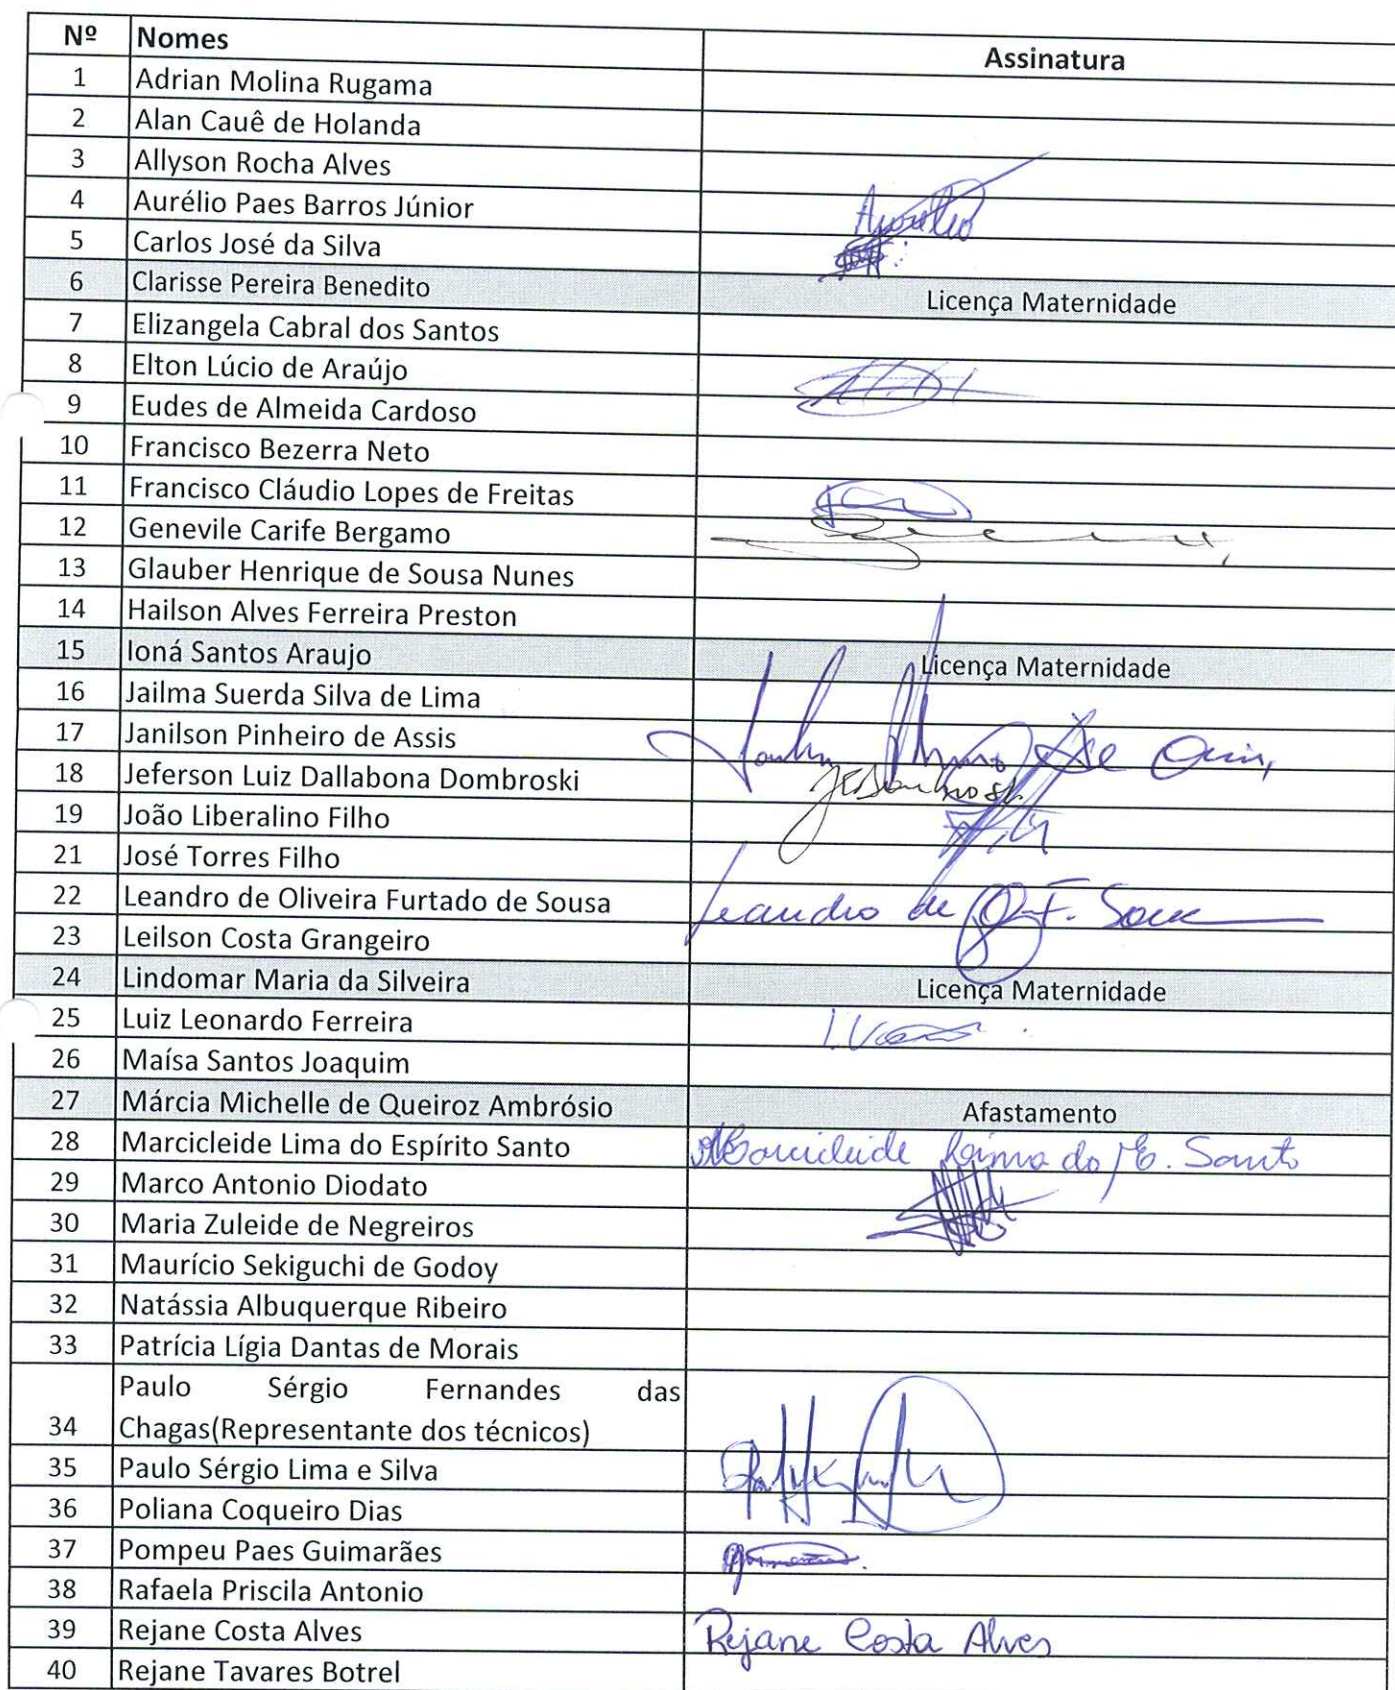 Nº Nomes Assinatura
1 Adrian Molina Rugama
2 Alan Cauê de Holanda
3 Allyson Rocha Alves
4 Aurélio Paes Barros Júnior Aurélio
5 Carlos José da Silva
6 Clarisse Pereira Benedito Licença Maternidade
7 Elizangela Cabral dos Santos
8 Elton Lúcio de Araújo
9 Eudes de Almeida Cardoso
10 Francisco Bezerra Neto
11 Francisco Cláudio Lopes de Freitas
12 Genevile Carife Bergamo
13 Glauber Henrique de Sousa Nunes
14 Hailson Alves Ferreira Preston
15 Ioná Santos Araujo Licença Maternidade
16 Jailma Suerda Silva de Lima
17 Janilson Pinheiro de Assis
18 Jeferson Luiz Dallabona Dombroski
19 João Liberalino Filho
21 José Torres Filho
22 Leandro de Oliveira Furtado de Sousa Leandro de O. F. Sousa
23 Leilson Costa Grangeiro
24 Lindomar Maria da Silveira Licença Maternidade
25 Luiz Leonardo Ferreira
26 Maísa Santos Joaquim
27 Márcia Michelle de Queiroz Ambrósio Afastamento
28 Marcicleide Lima do Espírito Santo Marcicleide Lima do E. Santo
29 Marco Antonio Diodato
30 Maria Zuleide de Negreiros
31 Maurício Sekiguchi de Godoy
32 Natássia Albuquerque Ribeiro
33 Patrícia Lígia Dantas de Morais
Paulo Sérgio Fernandes das
34 Chagas(Representante dos técnicos)
35 Paulo Sérgio Lima e Silva
36 Poliana Coqueiro Dias
37 Pompeu Paes Guimarães
38 Rafaela Priscila Antonio
39 Rejane Costa Alves Rejane Costa Alves
40 Rejane Tavares Botrel